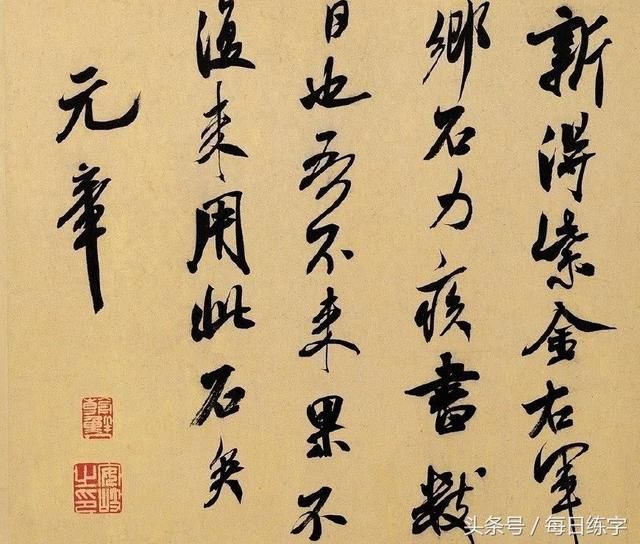 新得紫金右軍
鄉石力疾書數
日也吾不來果不
復來用此石矣
元章
安岐之印
头条号 / 每日练字